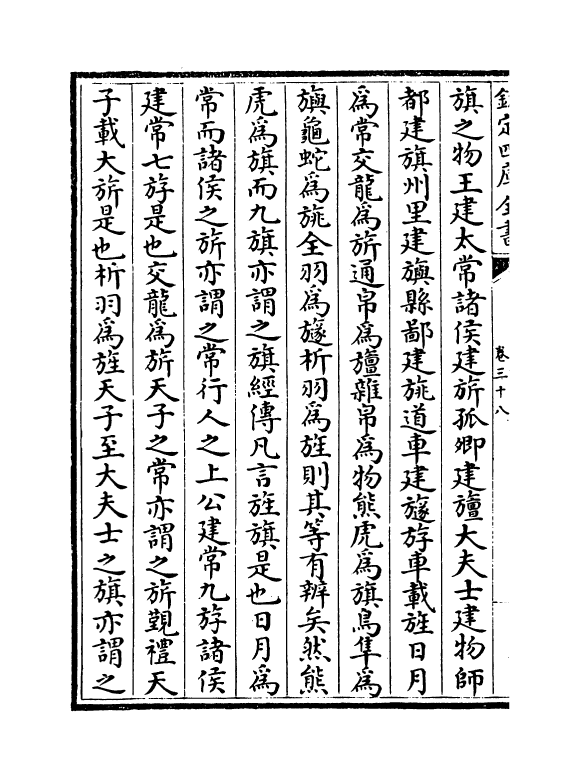 欽定四庫全書
卷三十八
旗之物王建太常諸侯建旂孤卿建旜大夫士建物師
都建旗州里建旟縣鄙建旐道車建旞斿車載旌日月
為常交龍為旂通帛為旜雜帛為物熊虎為旗鳥隼為
旟龜蛇為旐全羽為旞析羽為旌則其等有辨矣然熊
虎為旗而九旗亦謂之旗經傳凡言旌旗是也日月為
常而諸侯之旂亦謂之常行人之上公建常九斿諸侯
建常七斿是也交龍為旂天子之常亦謂之旂覲禮天
子載大旂是也析羽為旌天子至大夫士之旗亦謂之